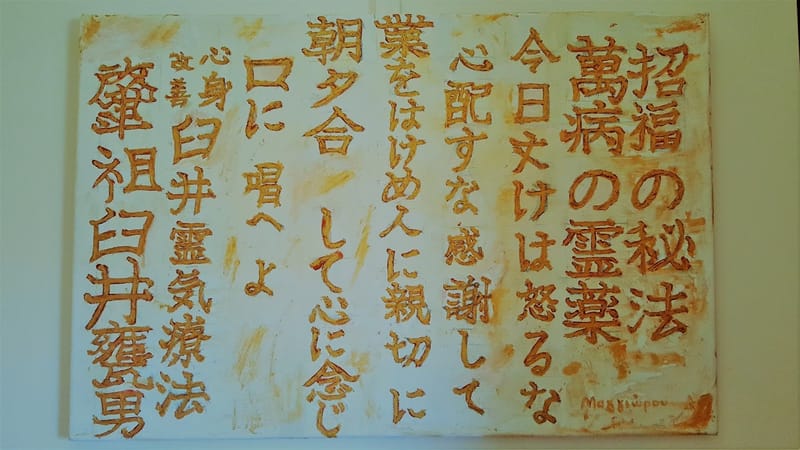 招福の秘法
萬病の霊薬
今日丈けは怒るな
心配すな感謝して
業をはけめ人に親切に
朝夕合 して心に念じ
口に 唱へよ
心身
改善
臼井霊気療法
肇祖臼井甕男
Μαγγιώρου Α